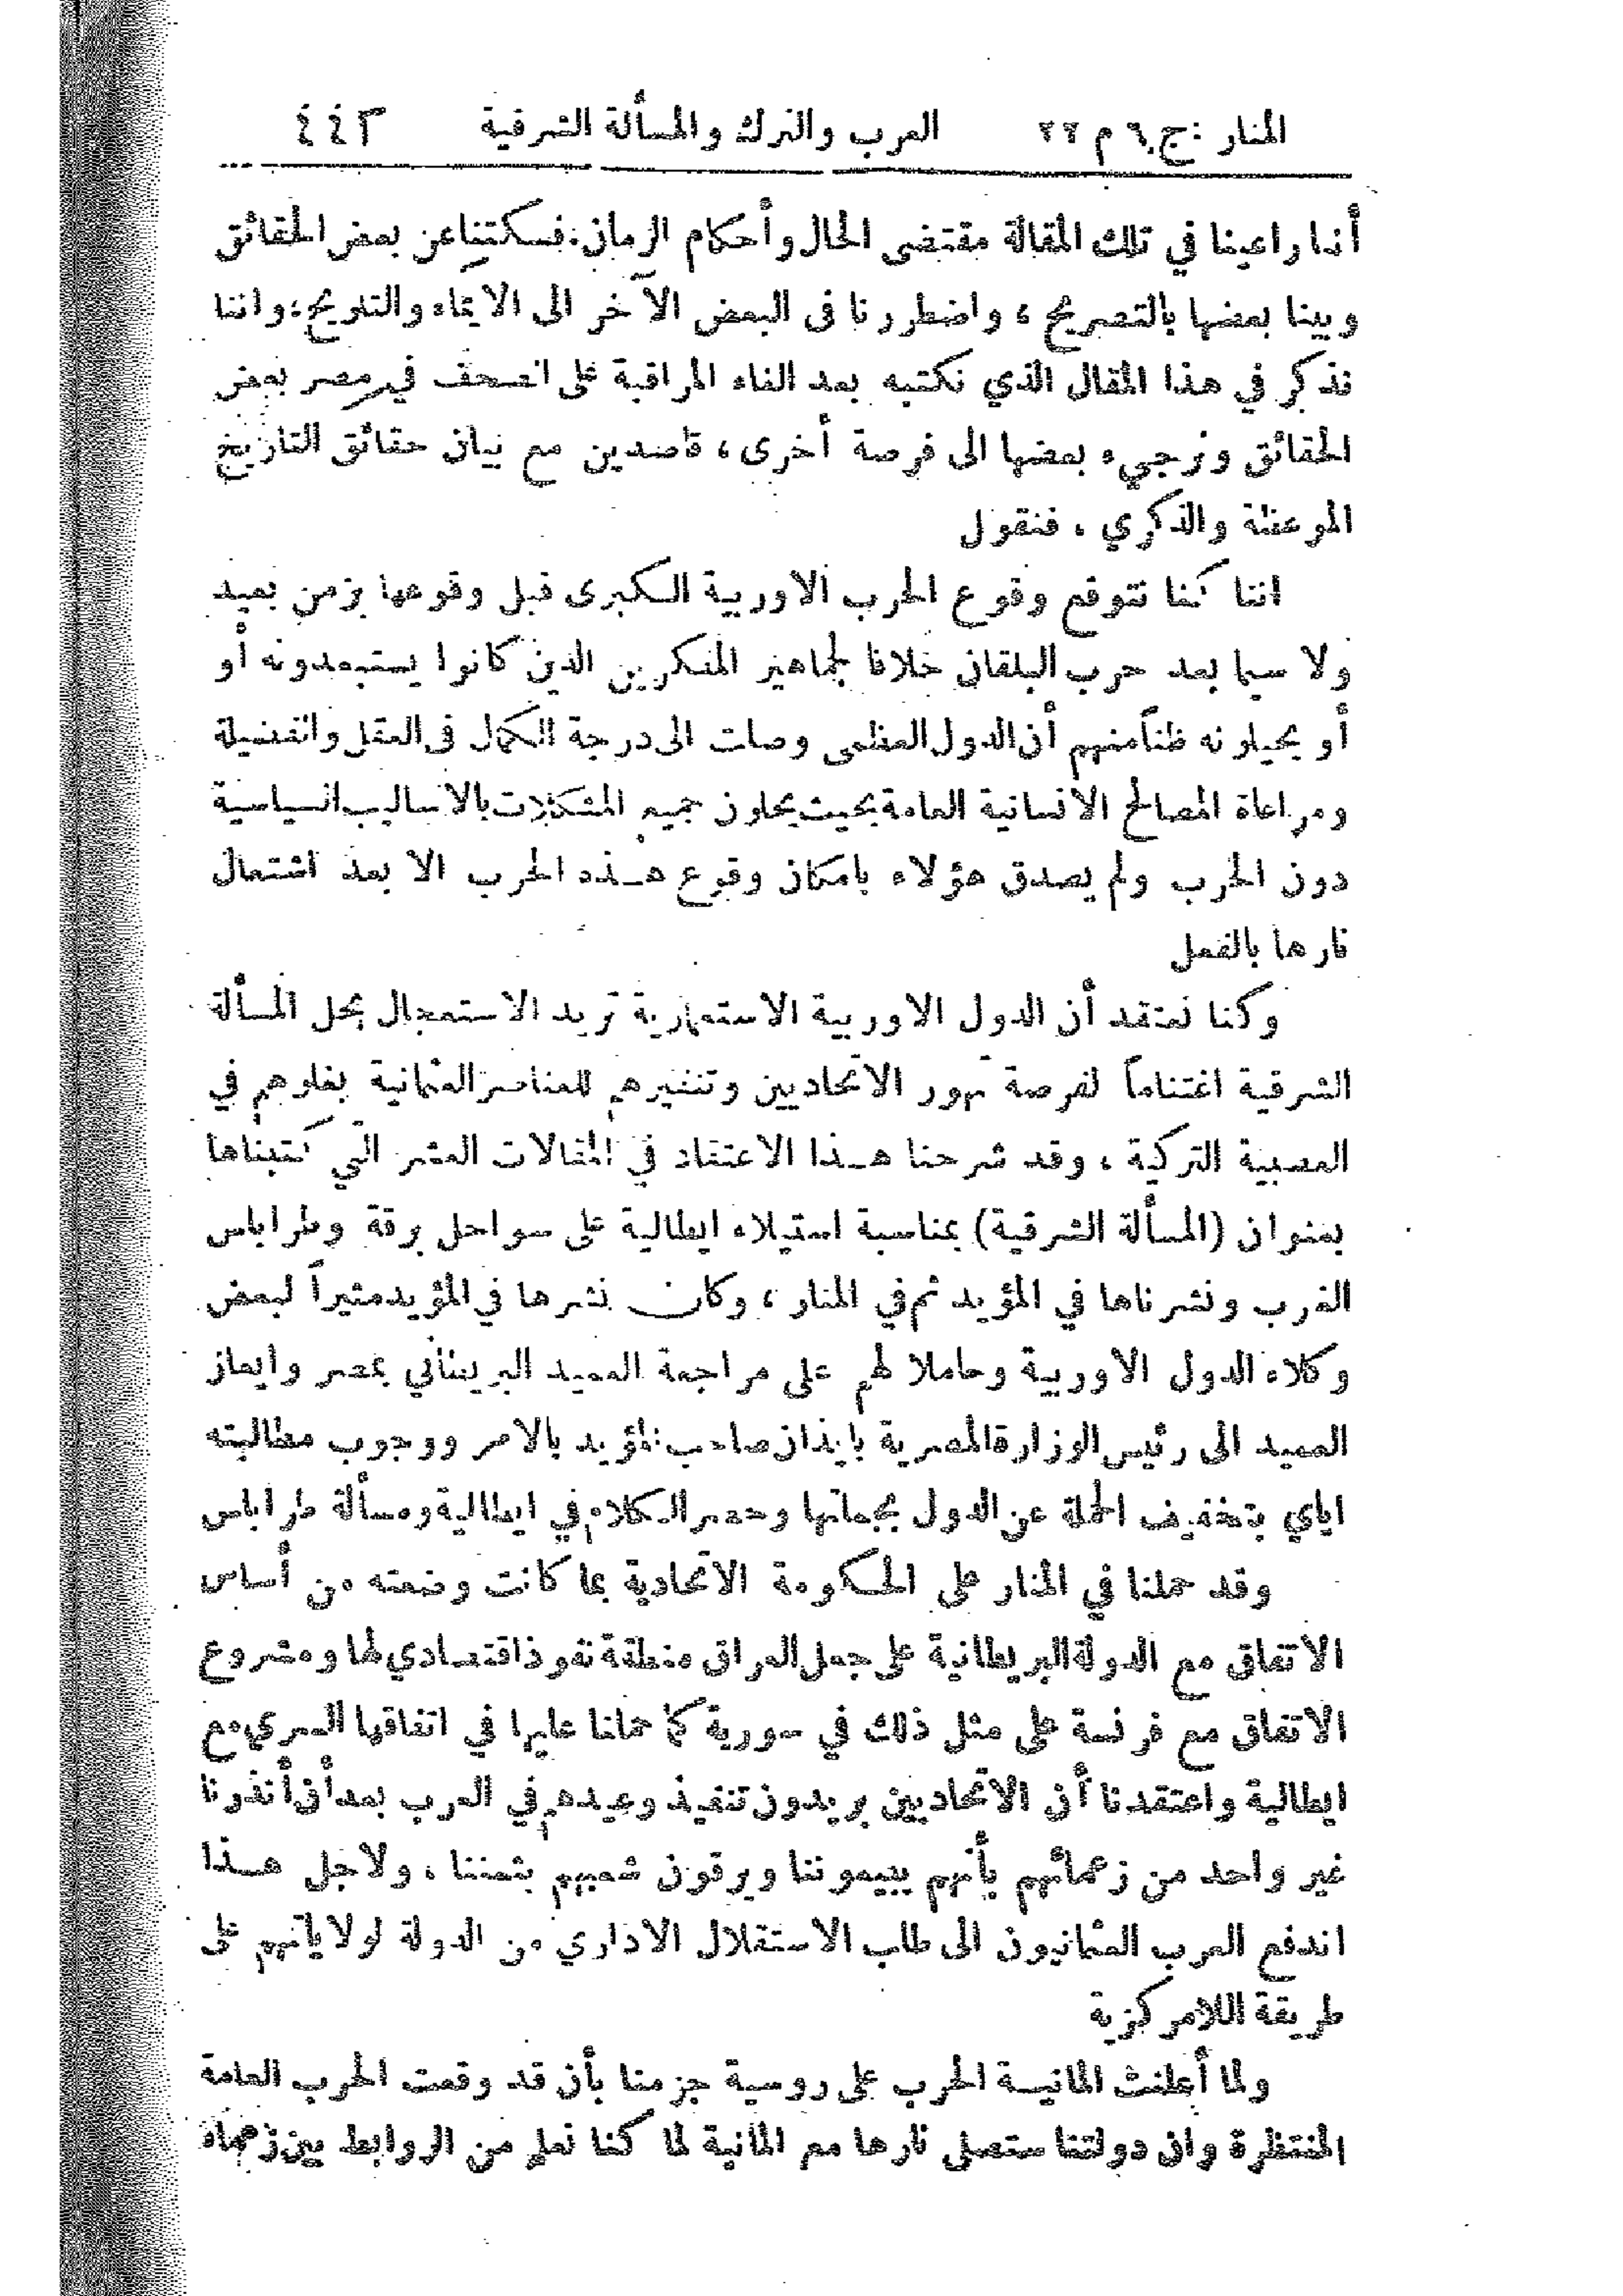 المنار : ج ٦ م ٢٢ العرب والترك والمسألة الشرقية ٤٤٣
أننا راعينا في تلك المقالة مقتضى الحال وأحكام الزمان : فسكتنا عن بعض الحقائق
وبينا بعضها بالتصريح ، واضطررنا في البعض الآخر الى الايماء والتلويح ، واننا
نذكر في هذا المقال الذي نكتبه بعد الغاء المراقبة على الصحف في مصر بعض
الحقائق ونرجيء بعضها الى فرصة أخرى ، قاصدين مع بيان حقائق التاريخ
الموعظة والذكرى ، فنقول
اننا كنا نتوقع وقوع الحرب الاوربية الكبرى قبل وقوعها بزمن بعيد
ولا سيما بعد حرب البلقان خلافا لجماهير المنكرين الذين كانوا يستبعدونه أو
أو يحيلونه ظناً منهم أن الدول العظمى وصلت الى درجة الكمال في العقل والفضيلة
ومراعاة المصالح الانسانية العامة بحيث يحلون جميع المشكلات بالاساليب السياسية
دون الحرب ولم يصدق هؤلاء بامكان وقوع هذه الحرب الا بعد اشتعال
نارها بالفعل
وكنا نعتقد أن الدول الاوربية الاستعمارية تريد الاستعجال بحل المسألة
الشرقية اغتناماً لفرصة تهور الاتحاديين وتنفيرهم للعناصر العثمانية بغلوهم في
العصبية التركية ، وقد شرحنا هذا الاعتقاد في المقالات العشر التي كتبناها
بعنوان (المسألة الشرقية) بمناسبة استيلاء ايطالية على سواحل برقة وطرابلس
الغرب ونشرناها في المؤيد ثم في المنار ، وكان نشرها في المؤيد مثيراً لبعض
وكلاء الدول الاوربية وحاملا لهم على مراجعة العميد البريطاني بمصر وايعاز
العميد الى رئيس الوزارة المصرية بايذان صاحب المؤيد بالامر ووجوب مطالبته
اياي بتخفيف الحملة عن الدول بجملتها وحصر الكلام في ايطالية ومسألة طرابلس
وقد حملنا في المنار على الحكومة الاتحادية بما كانت وضعته من أساس
الاتفاق مع الدولة البريطانية على جعل العراق منطقة نفوذ اقتصادي لها ومشروع
الاتفاق مع فرنسة على مثل ذلك في سورية كما حملنا عليها في اتفاقها السري مع
ايطالية واعتقدنا أن الاتحاديين يريدون تنفيذ وعيدهم في العرب بعد أن أنذرنا
غير واحد من زعمائهم بأنهم يبيعوننا ويرقون شعبهم بثمننا ، ولاجل هذا
اندفع العرب العثمانيون الى طلب الاستقلال الاداري من الدولة لولاياتهم على
طريقة اللامركزية
ولما أعلنت المانية الحرب على روسية جزمنا بأن قد وقعت الحرب العامة
المنتظرة وان دولتنا ستصلى نارها مع المانية لما كنا نعلم من الروابط بين زعماء